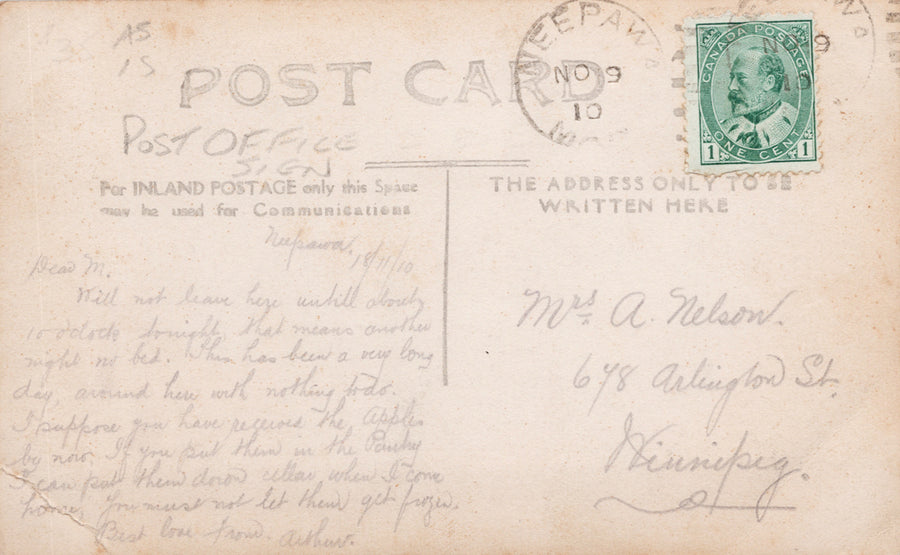 AS
15
POST CARD
NEEPAWA
NO 9
10
CANADA POSTAGE
NO 9
10
1 ONE CENT 1
POST OFFICE
SIGN
For INLAND POSTAGE only this Space
may be used for Communications
THE ADDRESS ONLY TO BE
WRITTEN HERE
Neepawa,
18/11/10
Dear M.
Will not leave here untill about
10 oclock tonight, that means another
night no bed. This has been a very long
day, around here with nothing to do.
I suppose you have received the Apples
by now. If you put them in the Pantry
I can put them down cellar when I come
home. You must not let them get frozen.
Best love from. Arthur.
Mrs A. Nelson.
678 Arlington St.
Winnipeg.